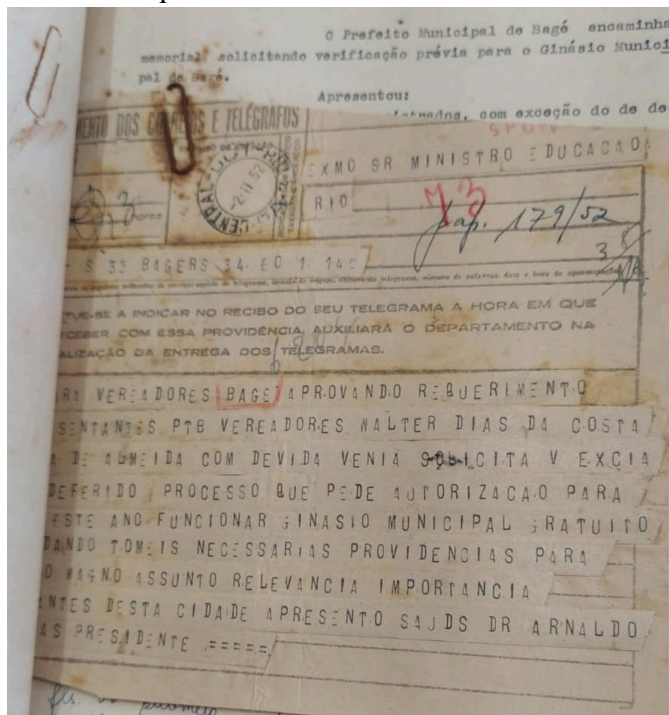 O Prefeito Municipal de Bagé encaminha
memorial, solicitando verificação prévia para o Ginásio Munici
pal de Bagé.
Apresentou:
com exceção do de de
DOS CORREIOS E TELÉGRAFOS
CENTRAL
EXMO SR MINISTRO EDUCACAO
RIO
73
pap. 179/52
S 33 BAGERS 34 60 1 14
A INDICAR NO RECIBO DO SEU TELEGRAMA A HORA EM QUE
COM ESSA PROVIDÊNCIA, AUXILIARÁ O DEPARTAMENTO NA
DA ENTREGA DOS TELEGRAMAS.
VEREADORES BAGE APROVANDO REQUERIMENTO
SENTANTES PTB VEREADORES WALTER DIAS DA COSTA
DE ALMEIDA COM DEVIDA VENIA SOLICITA V EXCIA
DEFERIDO PROCESSO QUE PEDE AUTORIZACAO PARA
ESTE ANO FUNCIONAR GINASIO MUNICIPAL GRATUITO
DANDO TOMEIS NECESSARIAS PROVIDENCIAS PARA
O MAGNO ASSUNTO RELEVANCIA IMPORTANCIA
ANTES DESTA CIDADE APRESENTO SAUDS DR ARNALDO
AS PRESIDENTE =====